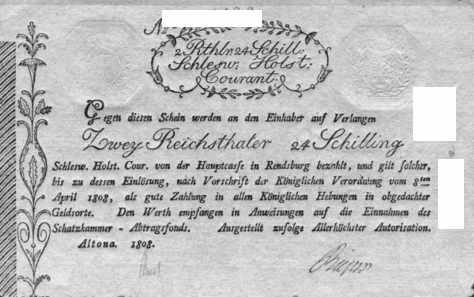 No
2 Rthlr. 24 Schill.
Schlesw. Holst:
Courant.
Gegen diesen Schein werden an den Einhaber auf Verlangen
Zwey Reichsthaler 24 Schilling
Schlesw. Holst. Cour. von der Hauptcasse in Rendsburg bezahlt, und gilt solcher,
bis zu dessen Einlösung, nach Vorschrift der Königlichen Verordnung vom 8ten
April 1808, als gute Zahlung in allen Königlichen Hebungen in obgedachter
Geldsorte. Den Werth empfangen in Anweisungen auf die Einnahmen des
Schatzkammer-Abtragsfonds. Ausgestellt zufolge Allerhöchster Autorisation.
Altona. 1808.